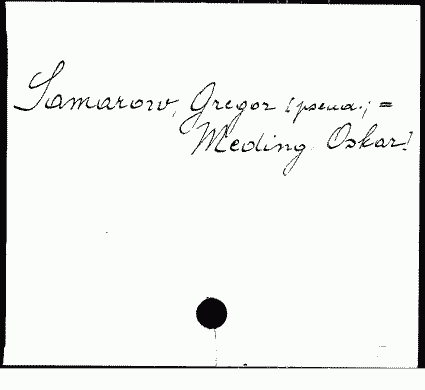 Samarow, Gregor [pseud.; =
Meding Oskar]